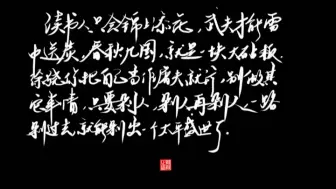 读书人只会锦上添花，武夫才能雪
中送炭，春秋九国，就是一块大砧板，
徐骁只把自己当作屠夫就行，别做其
它事情，只要剁人，剁人再剁人，一路
剁过去，就能剁出一个太平盛世了。